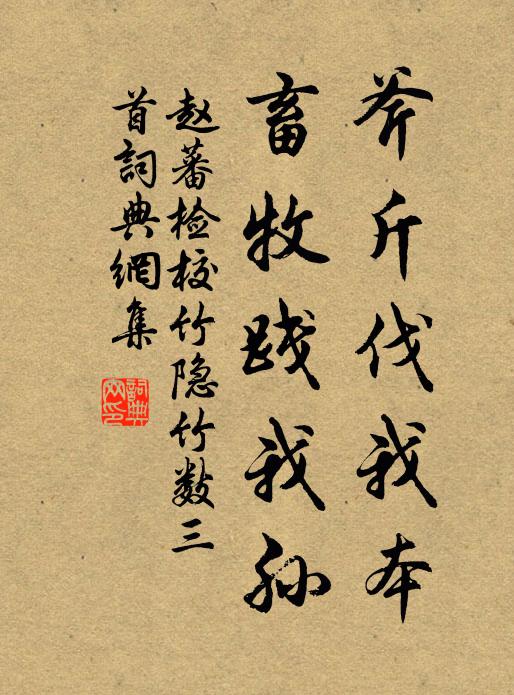 斧斤伐我本
畜牧践我孙
赵蕃检校竹隐竹数三
首詞典網集
詞典
网印